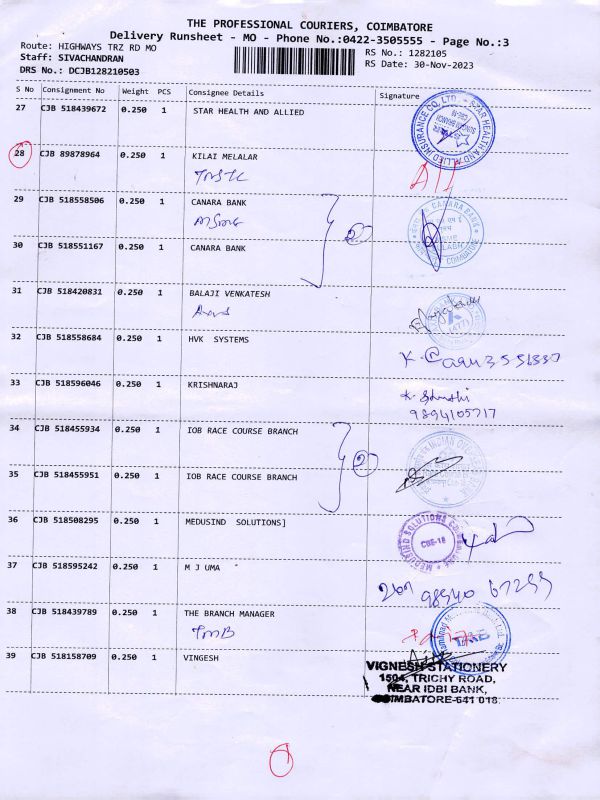 THE PROFESSIONAL COURIERS, COIMBATORE
Delivery Runsheet - MO - Phone No.:0422-3505555 - Page No.:3
Route: HIGHWAYS TRZ RD MO
RS No.: 1282105
Staff: SIVACHANDRAN
RS Date: 30-Nov-2023
DRS No.: DCJB128210503
S No Consignment No Weight PCS Consignee Details Signature
27 CJB 518439672 0.250 1 STAR HEALTH AND ALLIED
28 CJB 89878964 0.250 1 KILAI MELALAR
29 CJB 518558506 0.250 1 CANARA BANK
2
30 CJB 518551167 0.250 1 CANARA BANK
31 CJB 518420831 0.250 1 BALAJI VENKATESH
32 CJB 518558684 0.250 1 HVK SYSTEMS
33 CJB 518596046 0.250 1 KRISHNARAJ
9894105717
34 CJB 518455934 0.250 1 IOB RACE COURSE BRANCH
2
35 CJB 518455951 0.250 1 IOB RACE COURSE BRANCH
36 CJB 518508295 0.250 1 MEDUSIND SOLUTIONS]
MEDUSIND SOLUTIONS
CBE-18
37 CJB 518595242 0.250 1 M J UMA
98940 67255
38 CJB 518439789 0.250 1 THE BRANCH MANAGER
TMB
39 CJB 518158709 0.250 1 VINGESH
VIGNESH STATIONERY
1504, TRICHY ROAD,
NEAR IDBI BANK,
COIMBATORE-641 018.